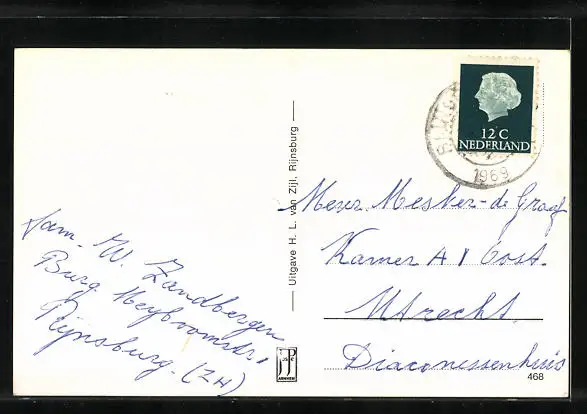 12 C
NEDERLAND
1969
Uitgave H. L. van Zijl, Rijnsburg
fam. W. Zandbergen
Burg Meyboomstr 1
Rijnsburg. (ZH)
Mevr. Mester-de Graaf
Kamer A 1 Oost.
Utrecht
Diaconessenhuis
JP
ARNHEM
468